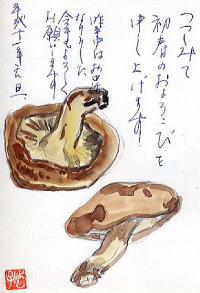 つつしみて
初春のおよろこびを
申し上げます
昨年はお世話に
なりました
今年もよろしく
お願いします
平成十一年元旦